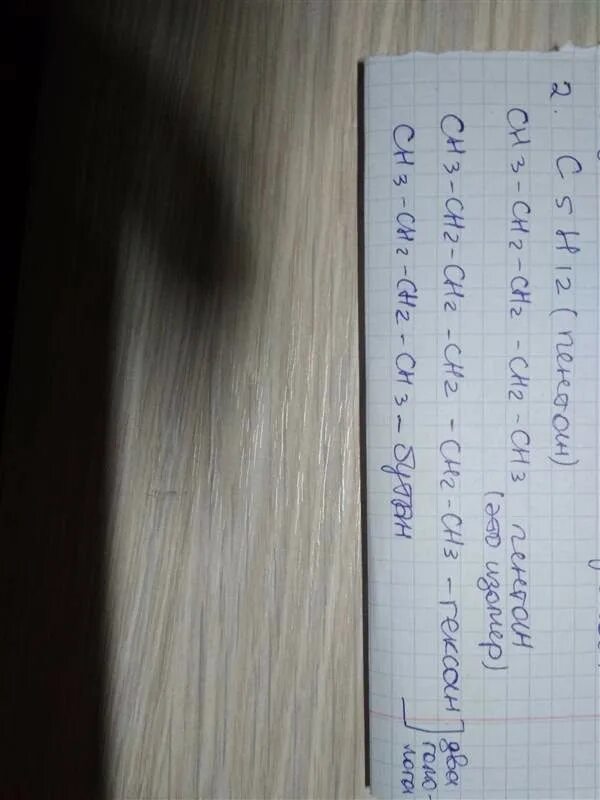 2. C5H12 (пентан)
CH3-CH2-CH2-CH2-CH3 пентан
(это изомер)
CH3-CH2-CH2-CH2-CH2-CH3 - гексан
CH3-CH2-CH2-CH3 - бутан
два
гомо-
лога